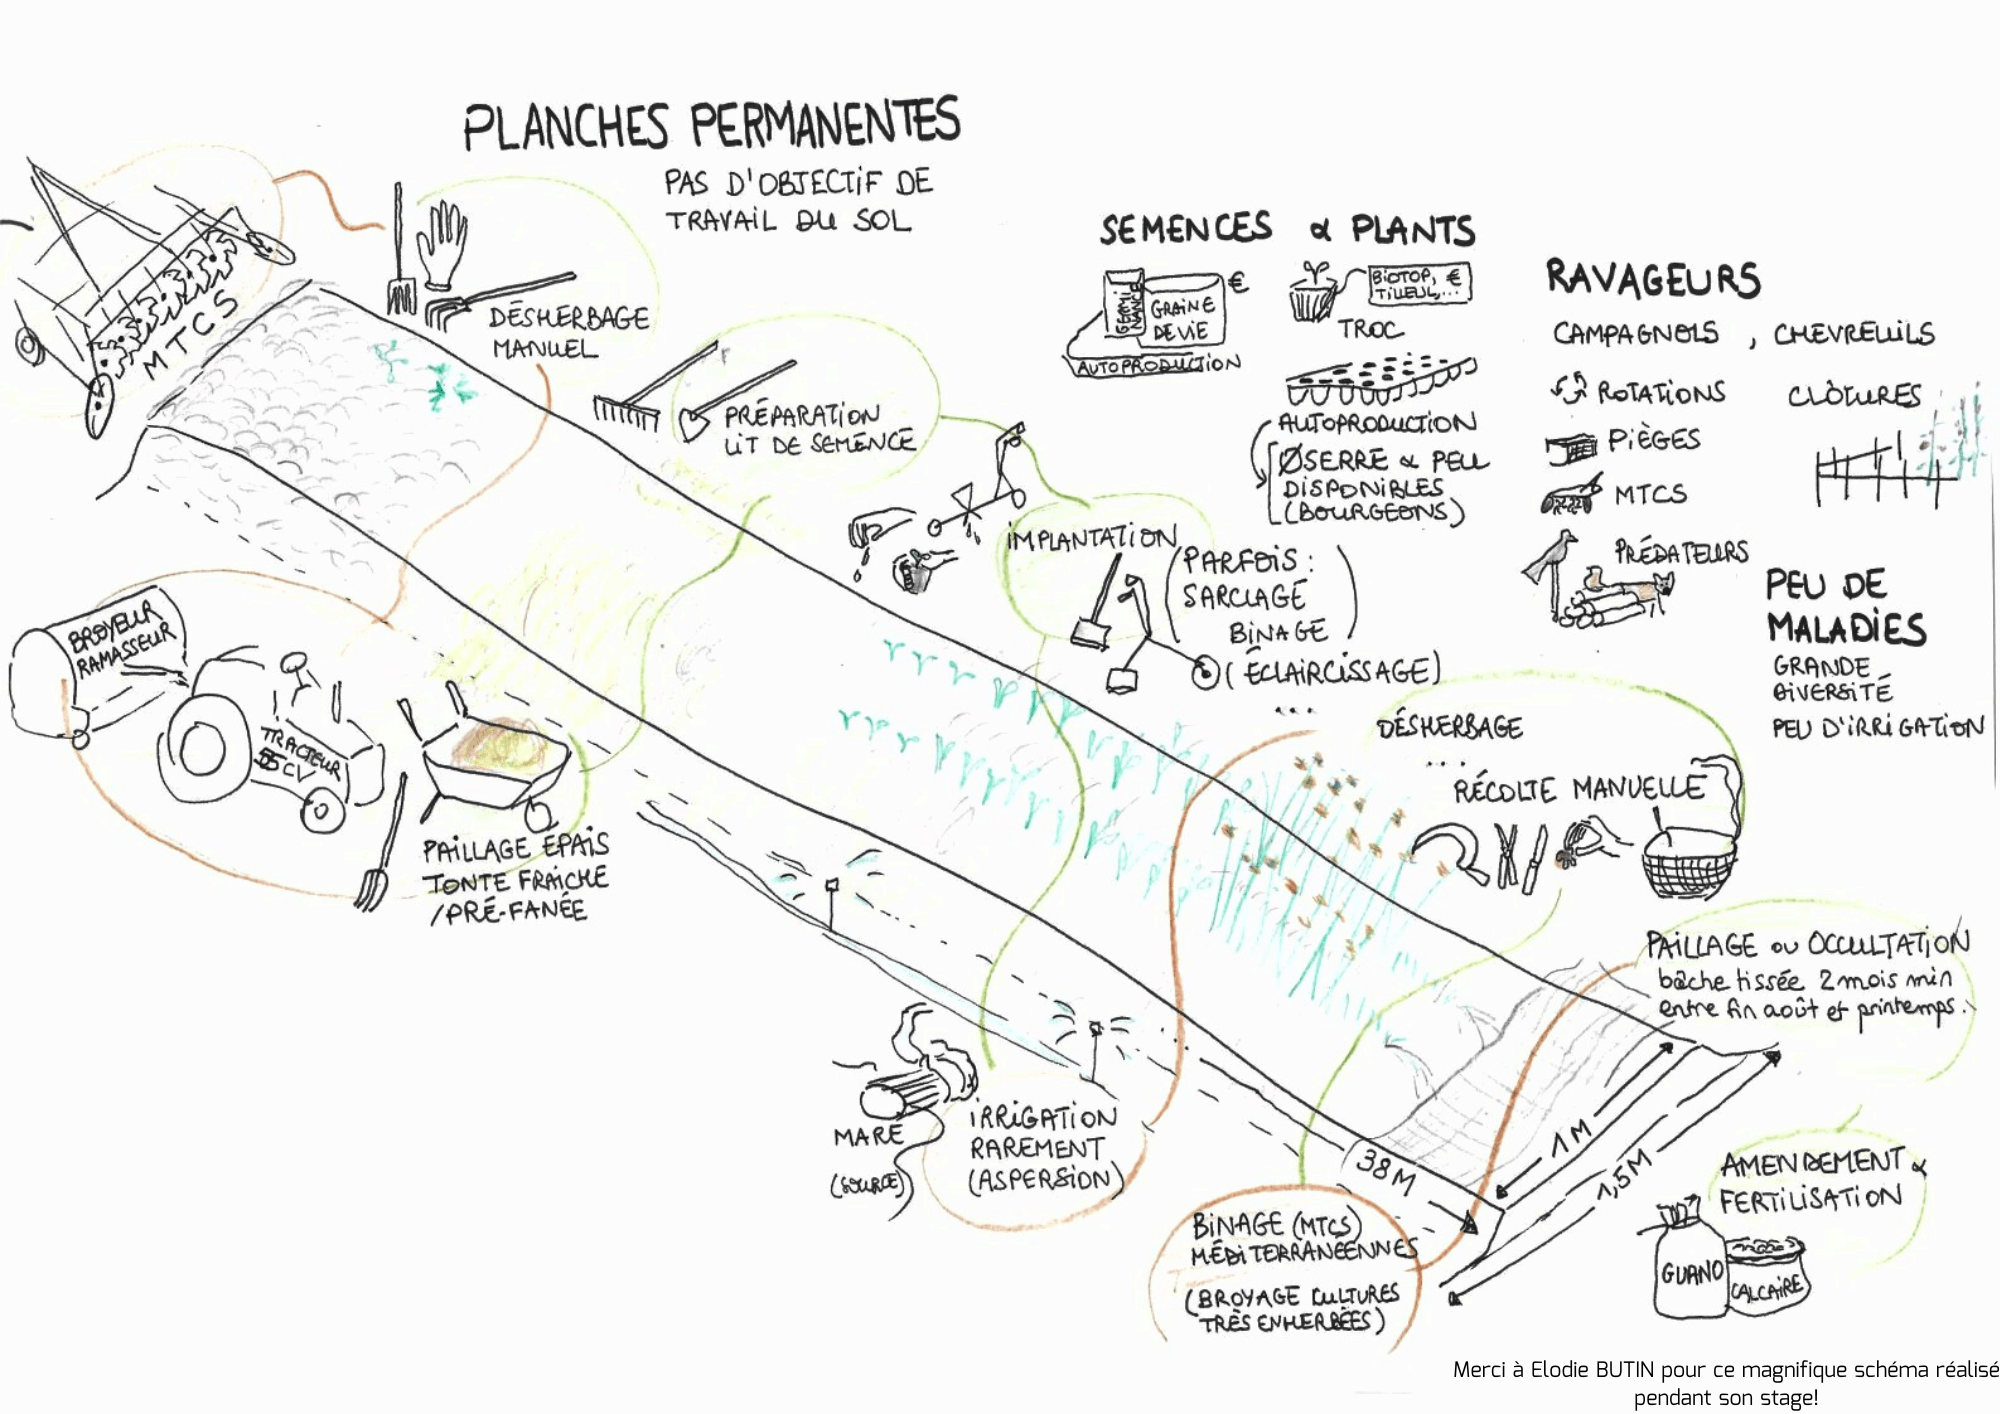 PLANCHES PERMANENTES
PAS D'OBJECTIF DE
TRAVAIL DU SOL
MTCS
DÉSHERBAGE
MANUEL
PRÉPARATION
LIT DE SEMENCE
IMPLANTATION
(PARFOIS :
SARCLAGE
BINAGE)
(ÉCLAIRCISSAGE)
...
DÉSHERBAGE
...
RÉCOLTE MANUELLE
SEMENCES & PLANTS
GERMINANCE
GRAINE
DE VIE
€
AUTOPRODUCTION
BIOTOP, €
TILLEUL,...
TROC
AUTOPRODUCTION
ØSERRE & PEU
DISPONIBLES
(BOURGEONS)
RAVAGEURS
CAMPAGNOLS , CHEVREUILS
ROTATIONS
CLÔTURES
PIÈGES
MTCS
PRÉDATEURS
PEU DE
MALADIES
GRANDE
DIVERSITÉ
PEU D'IRRIGATION
BROYEUR
RAMASSEUR
TRACTEUR
55 CV
PAILLAGE ÉPAIS
TONTE FRAICHE
/PRÉ-FANÉE
MARE
(SOURCE)
IRRIGATION
RAREMENT
(ASPERSION)
BINAGE (MTCS)
MÉDITERRANÉENNES
(BROYAGE CULTURES
TRÈS ENHERBÉES)
38M
1M
1,5M
PAILLAGE OU OCCULTATION
bâche tissée 2 mois min
entre fin août et printemps.
AMENDEMENT &
FERTILISATION
GUANO
CALCAIRE
Merci à Elodie BUTIN pour ce magnifique schéma réalisé
pendant son stage!